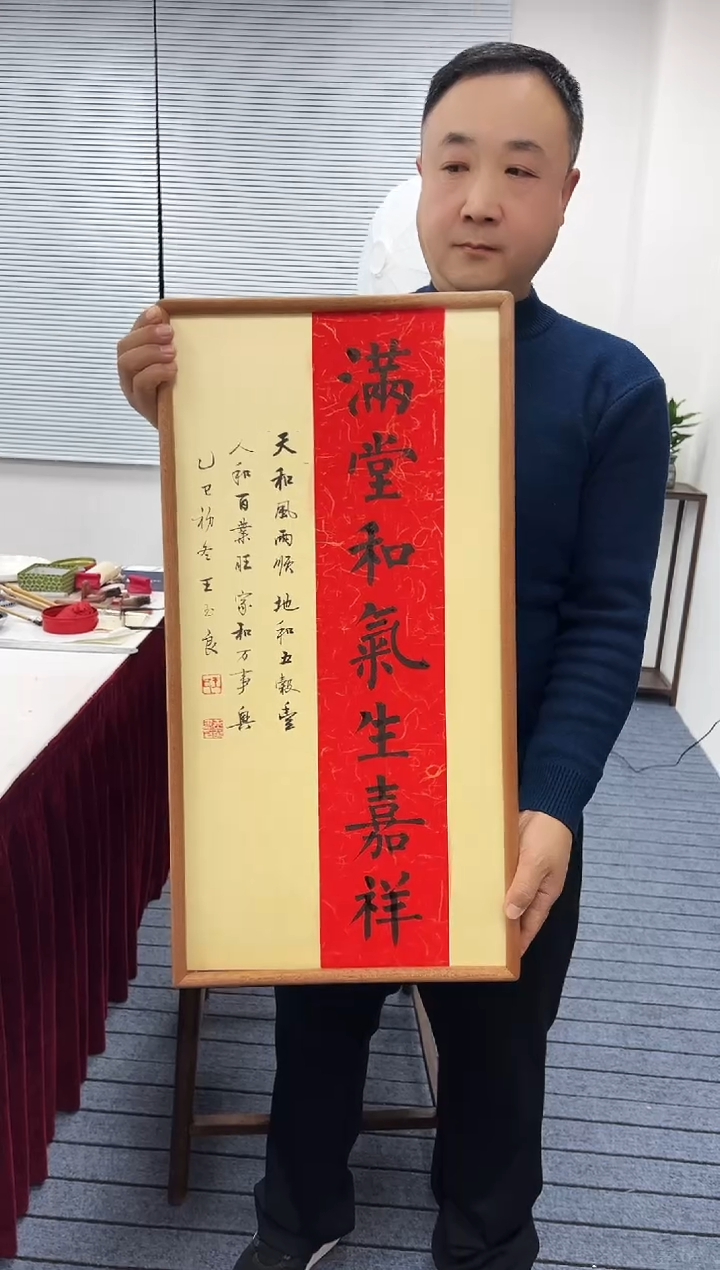 滿堂和氣生嘉祥
天和風雨順 地和五穀豐
人和百業旺 家和万事興
乙巳初冬王玉良